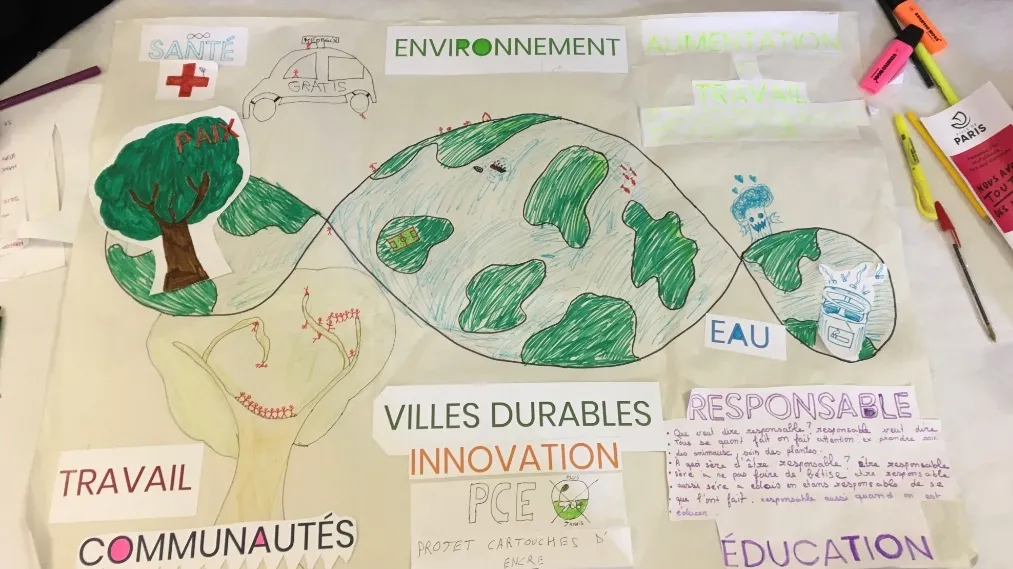 SANTÉ
GRATIS
ENVIRONNEMENT
ALIMENTATION
TRAVAIL
PAIX
PARIS
NOUS AV
TOUT
EAU
VILLES DURABLES
INNOVATION
PCE
PROJET CARTOUCHES D'
ENCRE
RESPONSABLE
• Que veut dire responsable? responsable veut dire
• Tous se quont fait on fait attention ex prendre soin
• des animausc, soin des plantes.
• A quoi sère d'être responsable? être responsable
• sère a ne pas faire de bétise être responsable
• aussi sère a
en etans responsable de se
• que l'ont fait. responsable aussi quand on est
• éducer.
ÉDUCATION
TRAVAIL
COMMUNAUTÉS